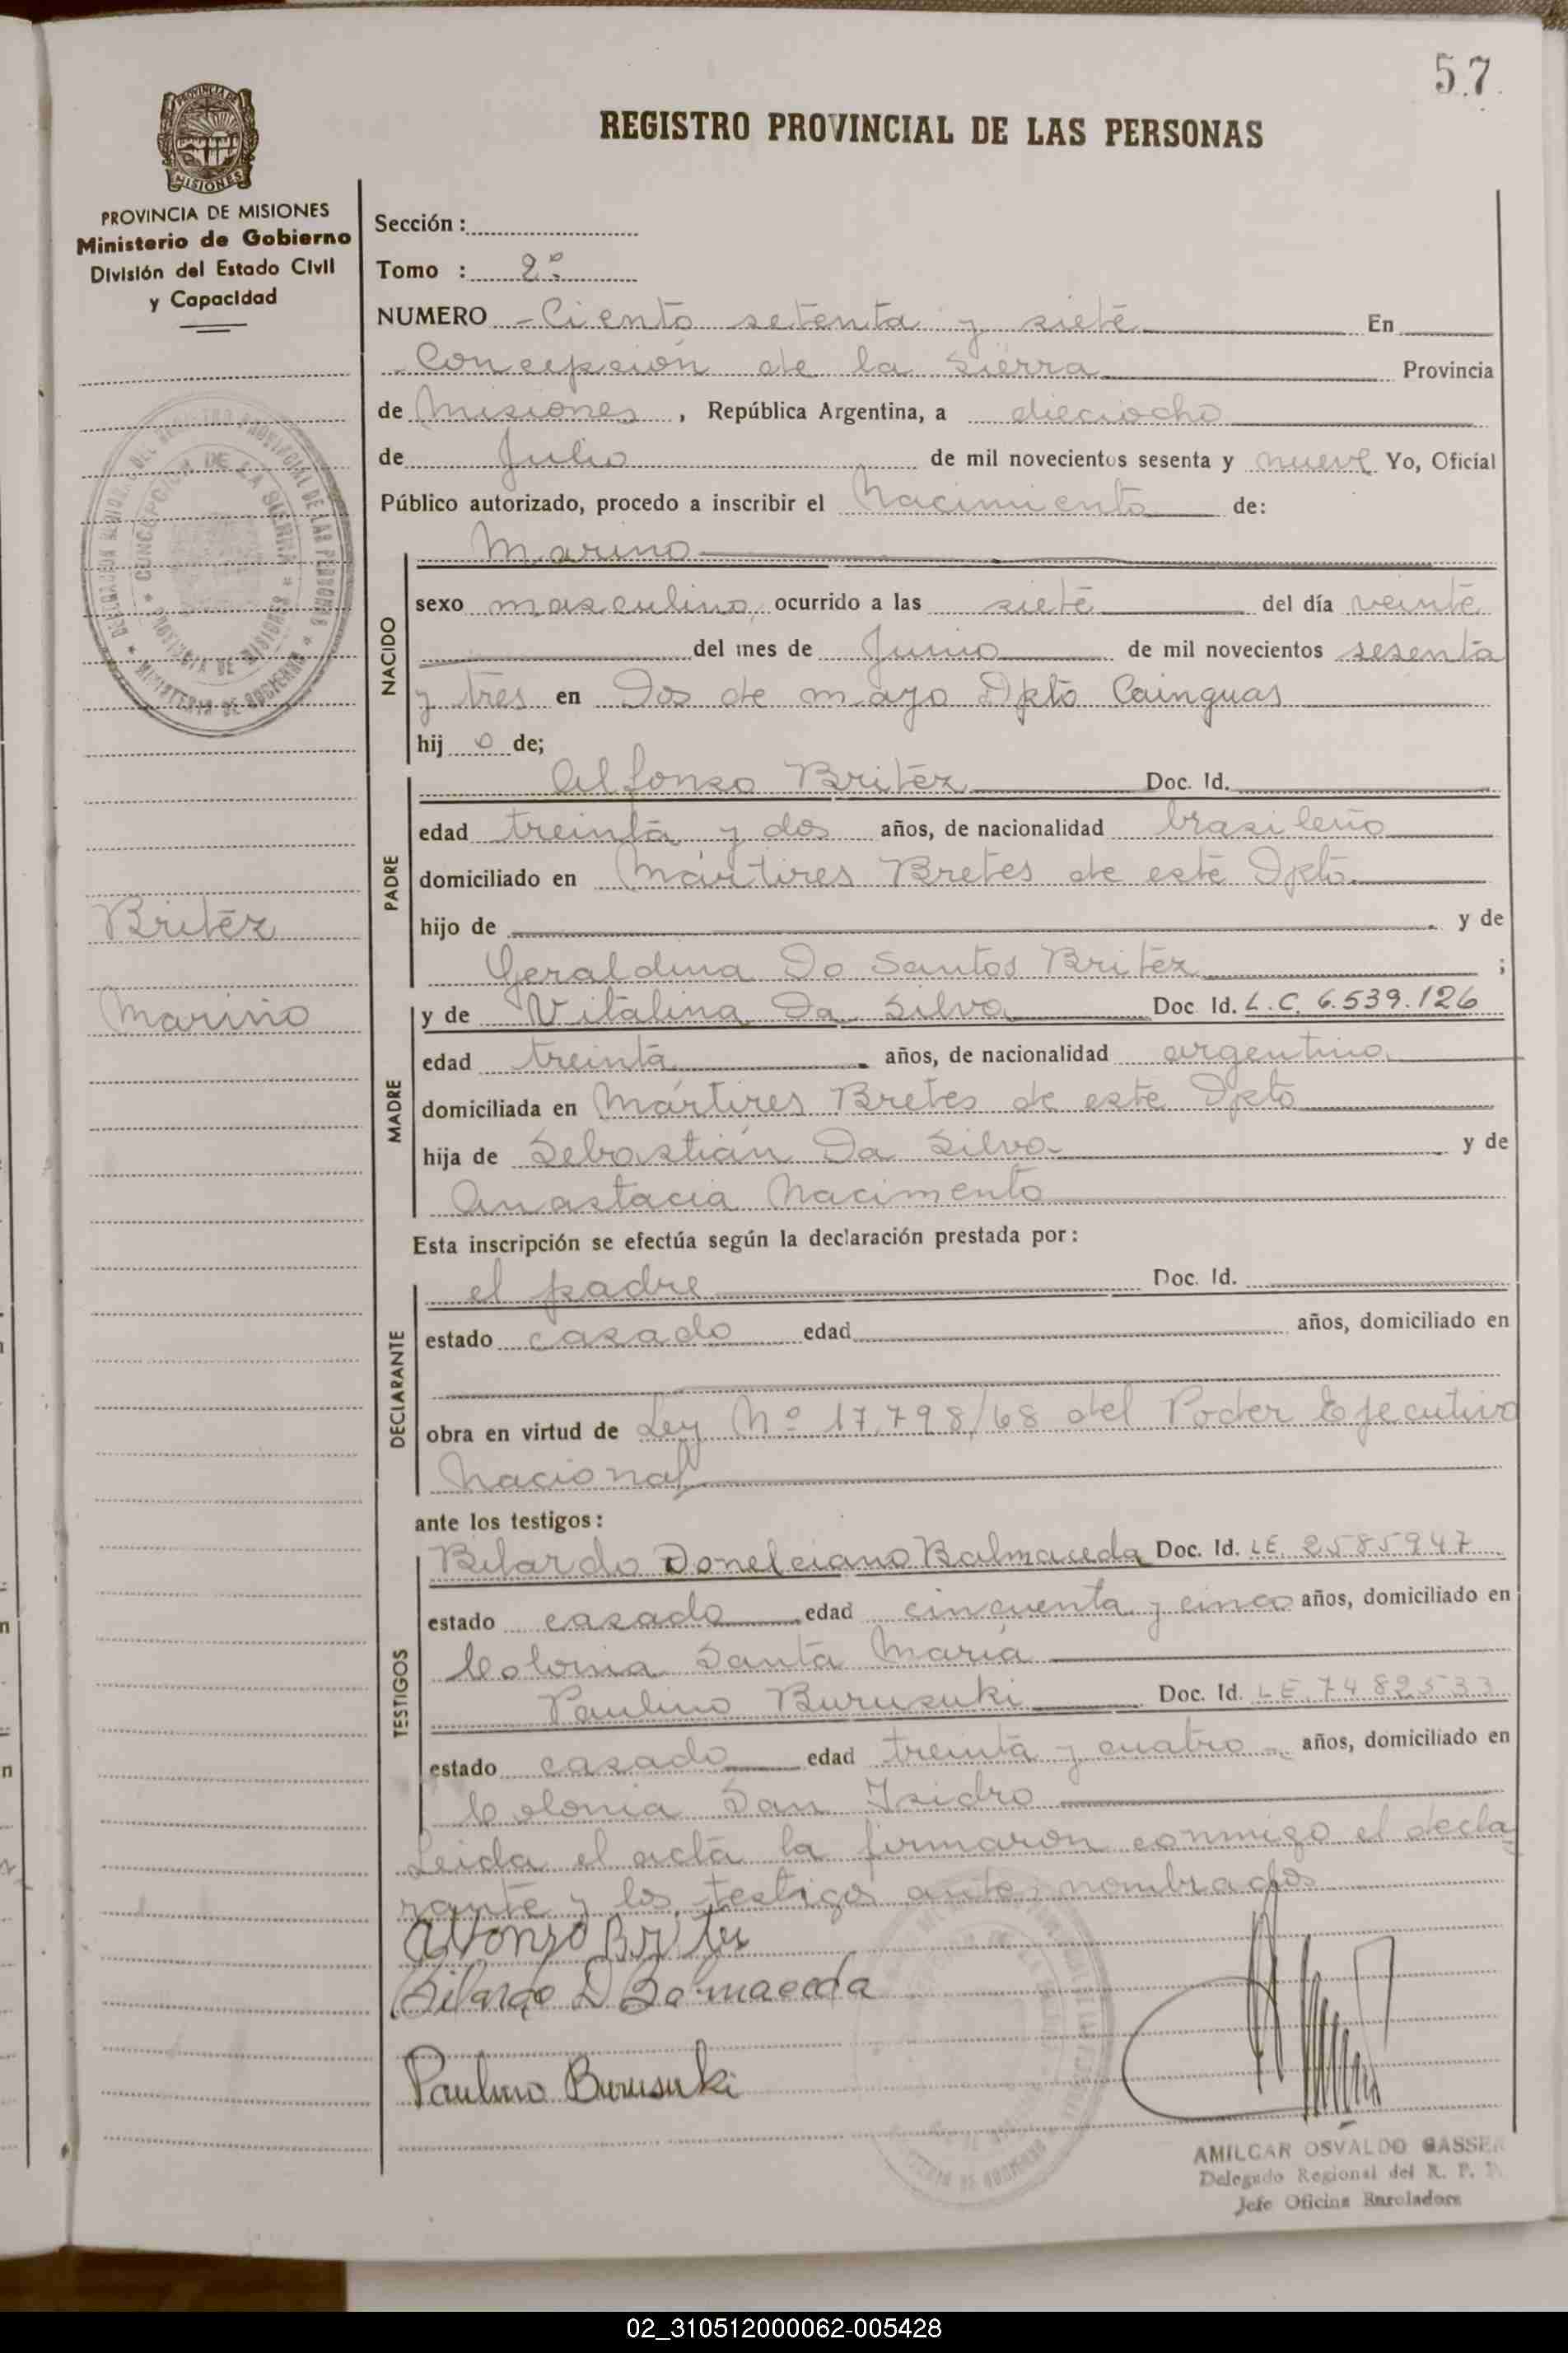 57
REGISTRO PROVINCIAL DE LAS PERSONAS
PROVINCIA DE MISIONES
MISIONES
PROVINCIA DE MISIONES
Ministerio de Gobierno
División del Estado Civil
y Capacidad
Sección :
Tomo : 2º
NUMERO - Ciento setenta y siete En
Concepción de la Sierra Provincia
de Misiones, República Argentina, a dieciocho
de Julio de mil novecientos sesenta y nueve Yo, Oficial
Público autorizado, procedo a inscribir el Nacimiento de:
Marino
NACIDO
sexo masculino ocurrido a las siete del día veinte
del mes de Junio de mil novecientos sesenta
y tres en Dos de mayo Dpto Cainguas
hij o de;
PADRE
Alfonso Britez Doc. Id.
edad treinta y dos años, de nacionalidad brasileño
domiciliado en Mártires Bretes de este Dpto.
hijo de y de
Geraldina Do Santos Britez ;
Britez
Marino
MADRE
y de Vitalina Da Silva Doc. Id. L.C. 6.539.126
edad treinta años, de nacionalidad argentina
domiciliada en Mártires Bretes de este Dpto
hija de Sebastián Da Silva y de
Anastacia Nacimento
Esta inscripción se efectúa según la declaración prestada por :
DECLARANTE
el padre Doc. Id.
estado casado edad años, domiciliado en
obra en virtud de Ley Nº 17.798/68 del Poder Ejecutivo
Nacional
ante los testigos :
TESTIGOS
Bilardo Donelciano Balmaceda Doc. Id. LE. 2585947
estado casado edad cincuenta y cinco años, domiciliado en
Colonia Santa María
Paulino Burusuki Doc. Id. LE. 7482533
estado casado edad treinta y cuatro - años, domiciliado en
Colonia San Isidro
Leida el acta la firmaron conmigo el decla
rante y los testigos ante nombrados
Alfonso Britez
Bilardo D Balmaceda
Paulino Burusuki
AMILCAR OSVALDO GASSER
Delegado Regional del R. P. P.
Jefe Oficina Enroladora
02_310512000062-005428